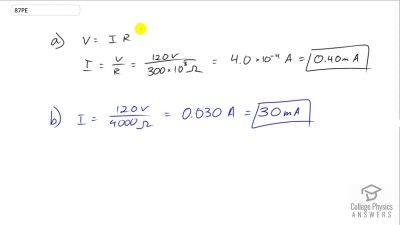 87PE
a) V = I R
I = V/R = 120V/300×10³Ω = 4.0×10⁻⁴ A = 0.40mA
b) I = 120V/4000Ω = 0.030 A = 30mA
College Physics
ANSWERS